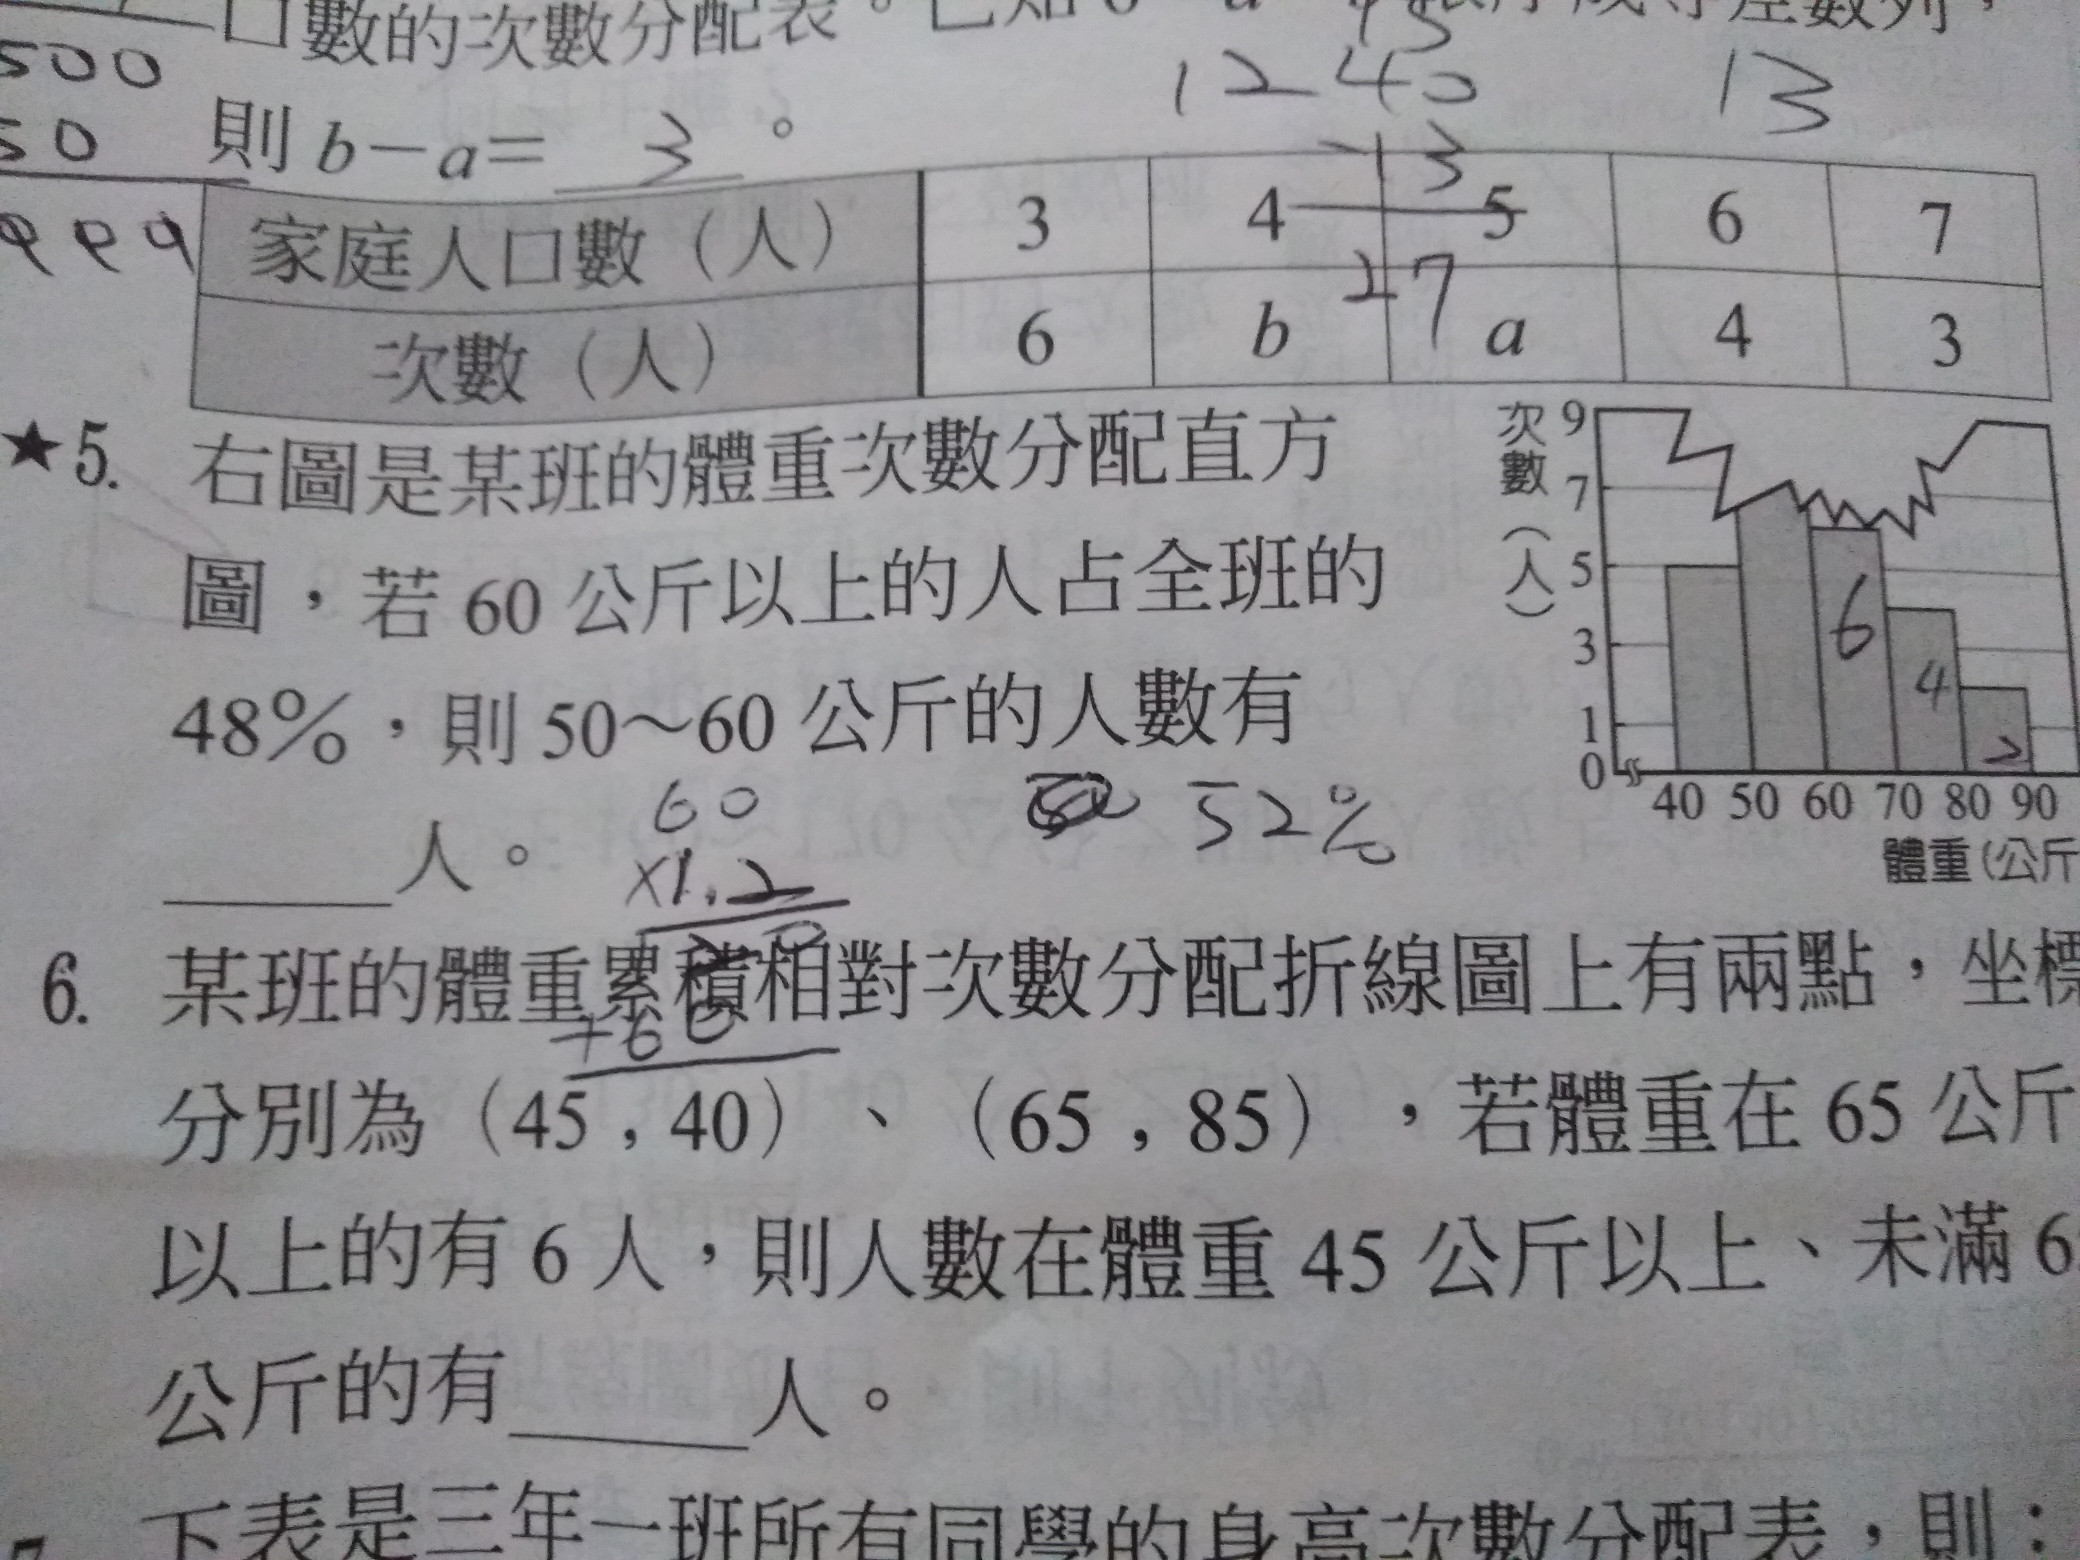 500
口數的次數分配表。已知
成等差數列，
12 40 13
50
則 b－a＝ 3 。
-13
999
家庭人口數（人） 3 4 5 6 7
27
次數（人） 6 b a 4 3
★5. 右圖是某班的體重次數分配直方
圖，若 60 公斤以上的人占全班的
48％，則 50～60 公斤的人數有
______人。
60
×1.2
+60
52%
次數（人）
9
7
5
3
1
0
6
4
2
40 50 60 70 80 90
體重(公斤
6. 某班的體重累積相對次數分配折線圖上有兩點，坐標
分別為（45 , 40）、（65 , 85），若體重在 65 公斤
以上的有 6 人，則人數在體重 45 公斤以上、未滿 6
公斤的有______人。
下表是三年一班所有同學的身高次數分配表，則：